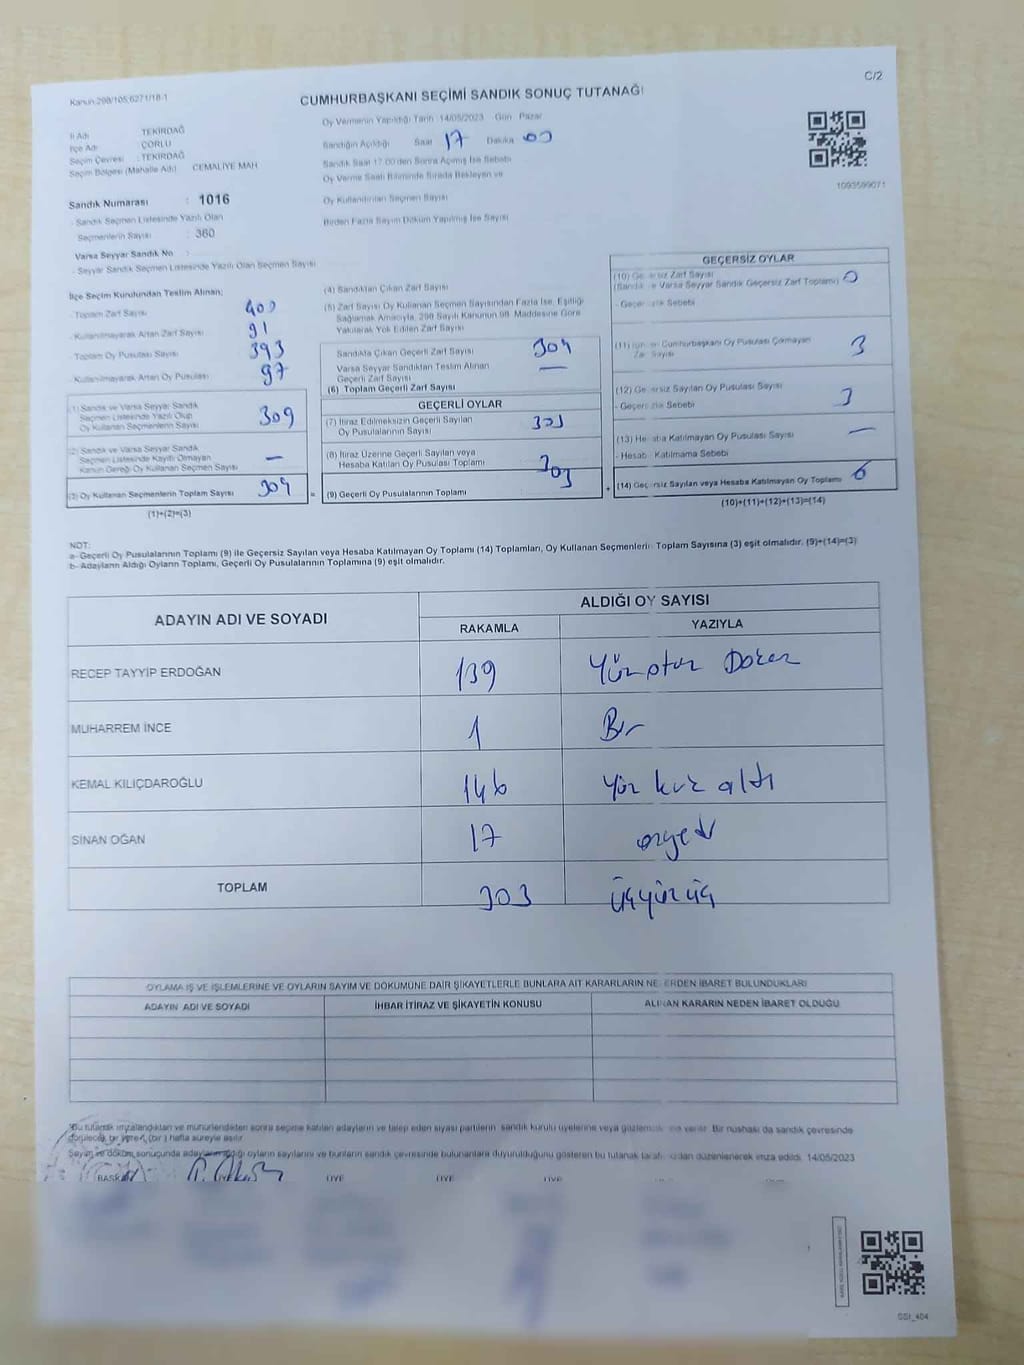 C/2
Kanun:298/105,6271/18-1
CUMHURBAŞKANI SEÇİMİ SANDIK SONUÇ TUTANAĞI
İl Adı : TEKİRDAĞ
İlçe Adı : ÇORLU
Seçim Çevresi : TEKİRDAĞ
Seçim Bölgesi (Mahalle Adı) : CEMALİYE MAH
Sandık Numarası : 1016
- Sandık Seçmen Listesinde Yazılı Olan
Seçmenlerin Sayısı : 360
Varsa Seyyar Sandık No :
- Seyyar Sandık Seçmen Listesinde Yazılı Olan Seçmen Sayısı
Oy Vermenin Yapıldığı Tarih :14/05/2023 Gün : Pazar
Sandığın Açıldığı Saat 17 Dakika 00
Sandık Saat 17.00'den Sonra Açılmış İse Sebebi
Oy Verme Saati Bitiminde Sırada Bekleyen ve
Oy Kullandırılan Seçmen Sayısı
Birden Fazla Sayım Döküm Yapılmış İse Sayısı
1093599071
İlçe Seçim Kurulundan Teslim Alınan;
- Toplam Zarf Sayısı 400
- Kullanılmayarak Artan Zarf Sayısı 91
- Toplam Oy Pusulası Sayısı 393
- Kullanılmayarak Artan Oy Pusulası 97
(1) Sandık ve Varsa Seyyar Sandık
Seçmen Listesinde Yazılı Olup
Oy Kullanan Seçmenlerin Sayısı 309
(2) Sandık ve Varsa Seyyar Sandık
Seçmen Listesinde Kayıtlı Olmayan
Kanun Gereği Oy Kullanan Seçmen Sayısı —
(3) Oy Kullanan Seçmenlerin Toplam Sayısı 309
(1)+(2)=(3)
(4) Sandıktan Çıkan Zarf Sayısı
(5) Zarf Sayısı Oy Kullanan Seçmen Sayısından Fazla İse, Eşitliği
Sağlamak Amacıyla, 298 Sayılı Kanunun 98. Maddesine Göre
Yakılarak Yok Edilen Zarf Sayısı
Sandıkta Çıkan Geçerli Zarf Sayısı 309
Varsa Seyyar Sandıktan Teslim Alınan
Geçerli Zarf Sayısı —
(6) Toplam Geçerli Zarf Sayısı
GEÇERLİ OYLAR
(7) İtiraz Edilmeksizin Geçerli Sayılan
Oy Pusulalarının Sayısı 303
(8) İtiraz Üzerine Geçerli Sayılan veya
Hesaba Katılan Oy Pusulası Toplamı
= (9) Geçerli Oy Pusulalarının Toplamı 303
GEÇERSİZ OYLAR
(10) Geçersiz Zarf Sayısı
(Sandık ve Varsa Seyyar Sandık Geçersiz Zarf Toplamı) 0
- Geçersizlik Sebebi
(11) İçinden Cumhurbaşkanı Oy Pusulası Çıkmayan
Zarf Sayısı 3
(12) Geçersiz Sayılan Oy Pusulası Sayısı 3
- Geçersizlik Sebebi
(13) Hesaba Katılmayan Oy Pusulası Sayısı —
- Hesaba Katılmama Sebebi
+ (14) Geçersiz Sayılan veya Hesaba Katılmayan Oy Toplamı 6
(10)+(11)+(12)+(13)=(14)
NOT:
a- Geçerli Oy Pusulalarının Toplamı (9) ile Geçersiz Sayılan veya Hesaba Katılmayan Oy Toplamı (14) Toplamları, Oy Kullanan Seçmenlerin Toplam Sayısına (3) eşit olmalıdır. (9)+(14)=(3)
b- Adayların Aldığı Oyların Toplamı, Geçerli Oy Pusulalarının Toplamına (9) eşit olmalıdır.
ADAYIN ADI VE SOYADI ALDIĞI OY SAYISI
RAKAMLA YAZIYLA
RECEP TAYYİP ERDOĞAN 139 Yüzotuz Dokuz
MUHARREM İNCE 1 Bir
KEMAL KILIÇDAROĞLU 146 Yüz kırk altı
SİNAN OĞAN 17 onyedi
TOPLAM 303 üçyüzüç
OYLAMA İŞ VE İŞLEMLERİNE VE OYLARIN SAYIM VE DÖKÜMÜNE DAİR ŞİKAYETLERLE BUNLARA AİT KARARLARIN NELERDEN İBARET BULUNDUKLARI
ADAYIN ADI VE SOYADI İHBAR İTİRAZ VE ŞİKAYETİN KONUSU ALINAN KARARIN NEDEN İBARET OLDUĞU
İşbu tutanak imzalandıktan ve mühürlendikten sonra seçime katılan adayların ve talep eden siyasi partilerin sandık kurulu üyelerine veya gözlemcilerine verilir. Bir nüshası da sandık çevresinde
görülecek bir yere 1 (bir) hafta süreyle asılır.
Sayım ve döküm sonuçunda adayların aldığı oyların sayılarını ve bunların sandık çevresinde bulunanlara duyurulduğunu gösteren bu tutanak tarafımızdan düzenlenerek imza edildi. 14/05/2023
BAŞKAN ÜYE ÜYE ÜYE
GSI_404